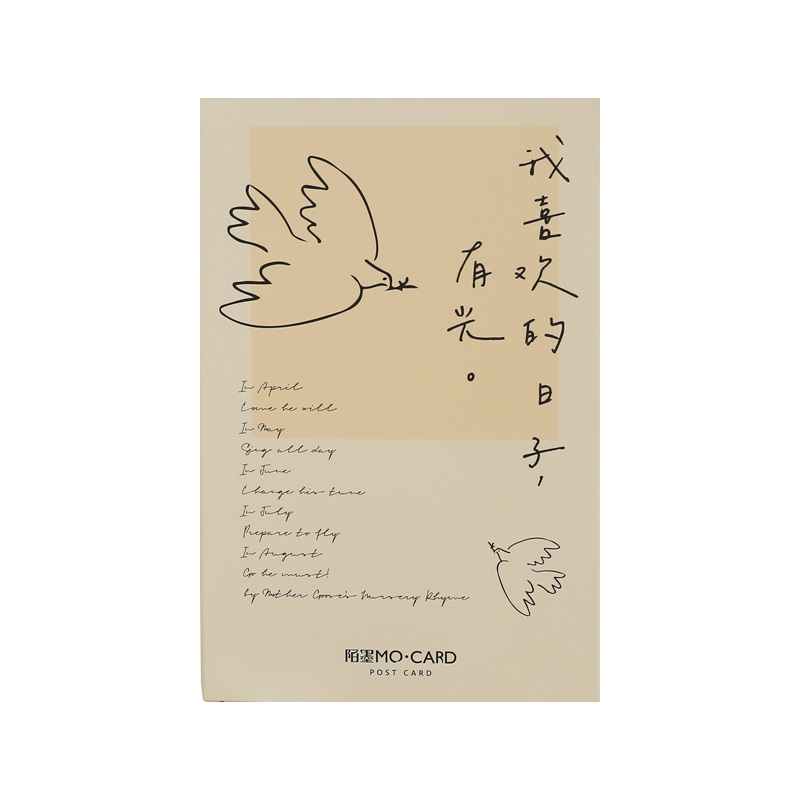 我喜欢的日子，
有光。
In April
Come he will
In May
Sing all day
In June
Change his tune
In July
Prepare to fly
In August
Go he must!
by Mother Goose's Nursery Rhyme
陌墨MO·CARD
POST CARD